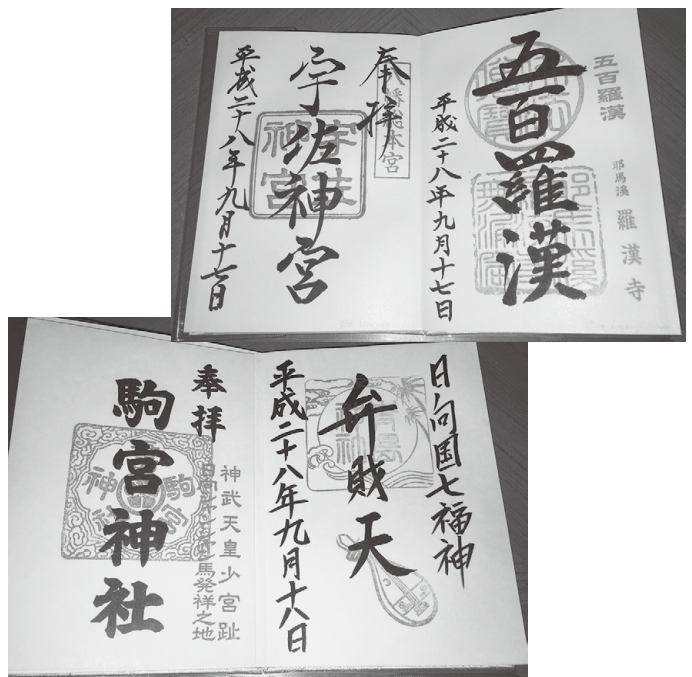 五百羅漢
耶馬渓 羅漢寺
五百羅漢
平成二十八年九月十七日
奉拝
八幡総本宮
宇佐神宮
宇佐神宮
平成二十八年九月十七日
日向国七福神
弁財天
平成二十八年九月十八日
奉拝
神武天皇少宮趾
日向シャンシャン馬発祥之地
駒宮神社
駒宮神社